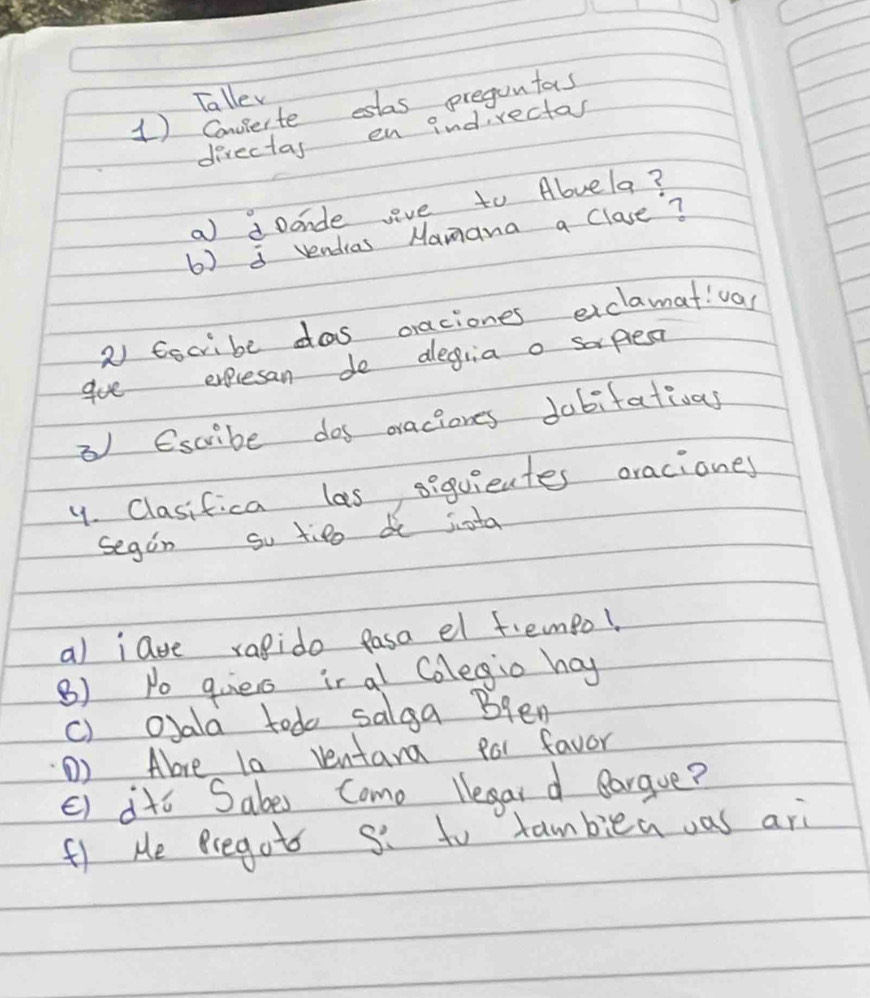 Taller
1) Convierte estas preguntas
directas en indirectas
a) ¿Dónde vive tu Abuela?
b) ¿ vendras Mamana a Clase?
2) Escribe dos oraciones exclamativas
que expresan de alegria o sorpresa
3) Escribe dos oraciones dubitativas
4. Clasifica las siguientes oraciones
según su tipo de
a) ¡Que rapido pasa el tiempo!
B) No quiero ir al Colegio hoy
C) Ojala todo salga Bien
D) Abre la ventana por favor
E) ¿tú Sabes Como llegar d Parque?
f) Me pregúto si tu tambien vas ari